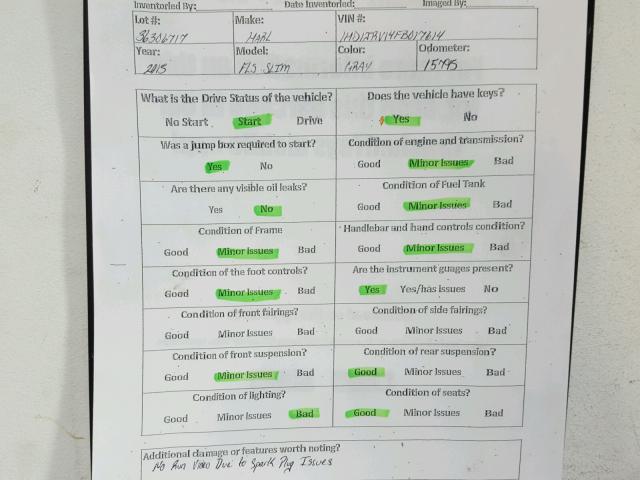 Inventoried By: Date Inventoried: Imaged By:
Lot #: Make: VIN #:
36306717 HARL 1HD1JRV14FB017614
Year: Model: Color: Odometer:
2015 FLS SLIM GRAY 15795
What is the Drive Status of the vehicle? Does the vehicle have keys?
No Start Start Drive Yes No
Was a jump box required to start? Condition of engine and transmission?
Yes No Good Minor Issues Bad
Are there any visible oil leaks? Condition of Fuel Tank
Yes No Good Minor Issues Bad
Condition of Frame Handlebar and hand controls condition?
Good Minor Issues Bad Good Minor Issues Bad
Condition of the foot controls? Are the instrument guages present?
Good Minor Issues Bad Yes Yes/has issues No
Condition of front fairings? Condition of side fairings?
Good Minor Issues Bad Good Minor Issues Bad
Condition of front suspension? Condition of rear suspension?
Good Minor Issues Bad Good Minor Issues Bad
Condition of lighting? Condition of seats?
Good Minor Issues Bad Good Minor Issues Bad
Additional damage or features worth noting?
No Run Video Due to Spark Plug Issues